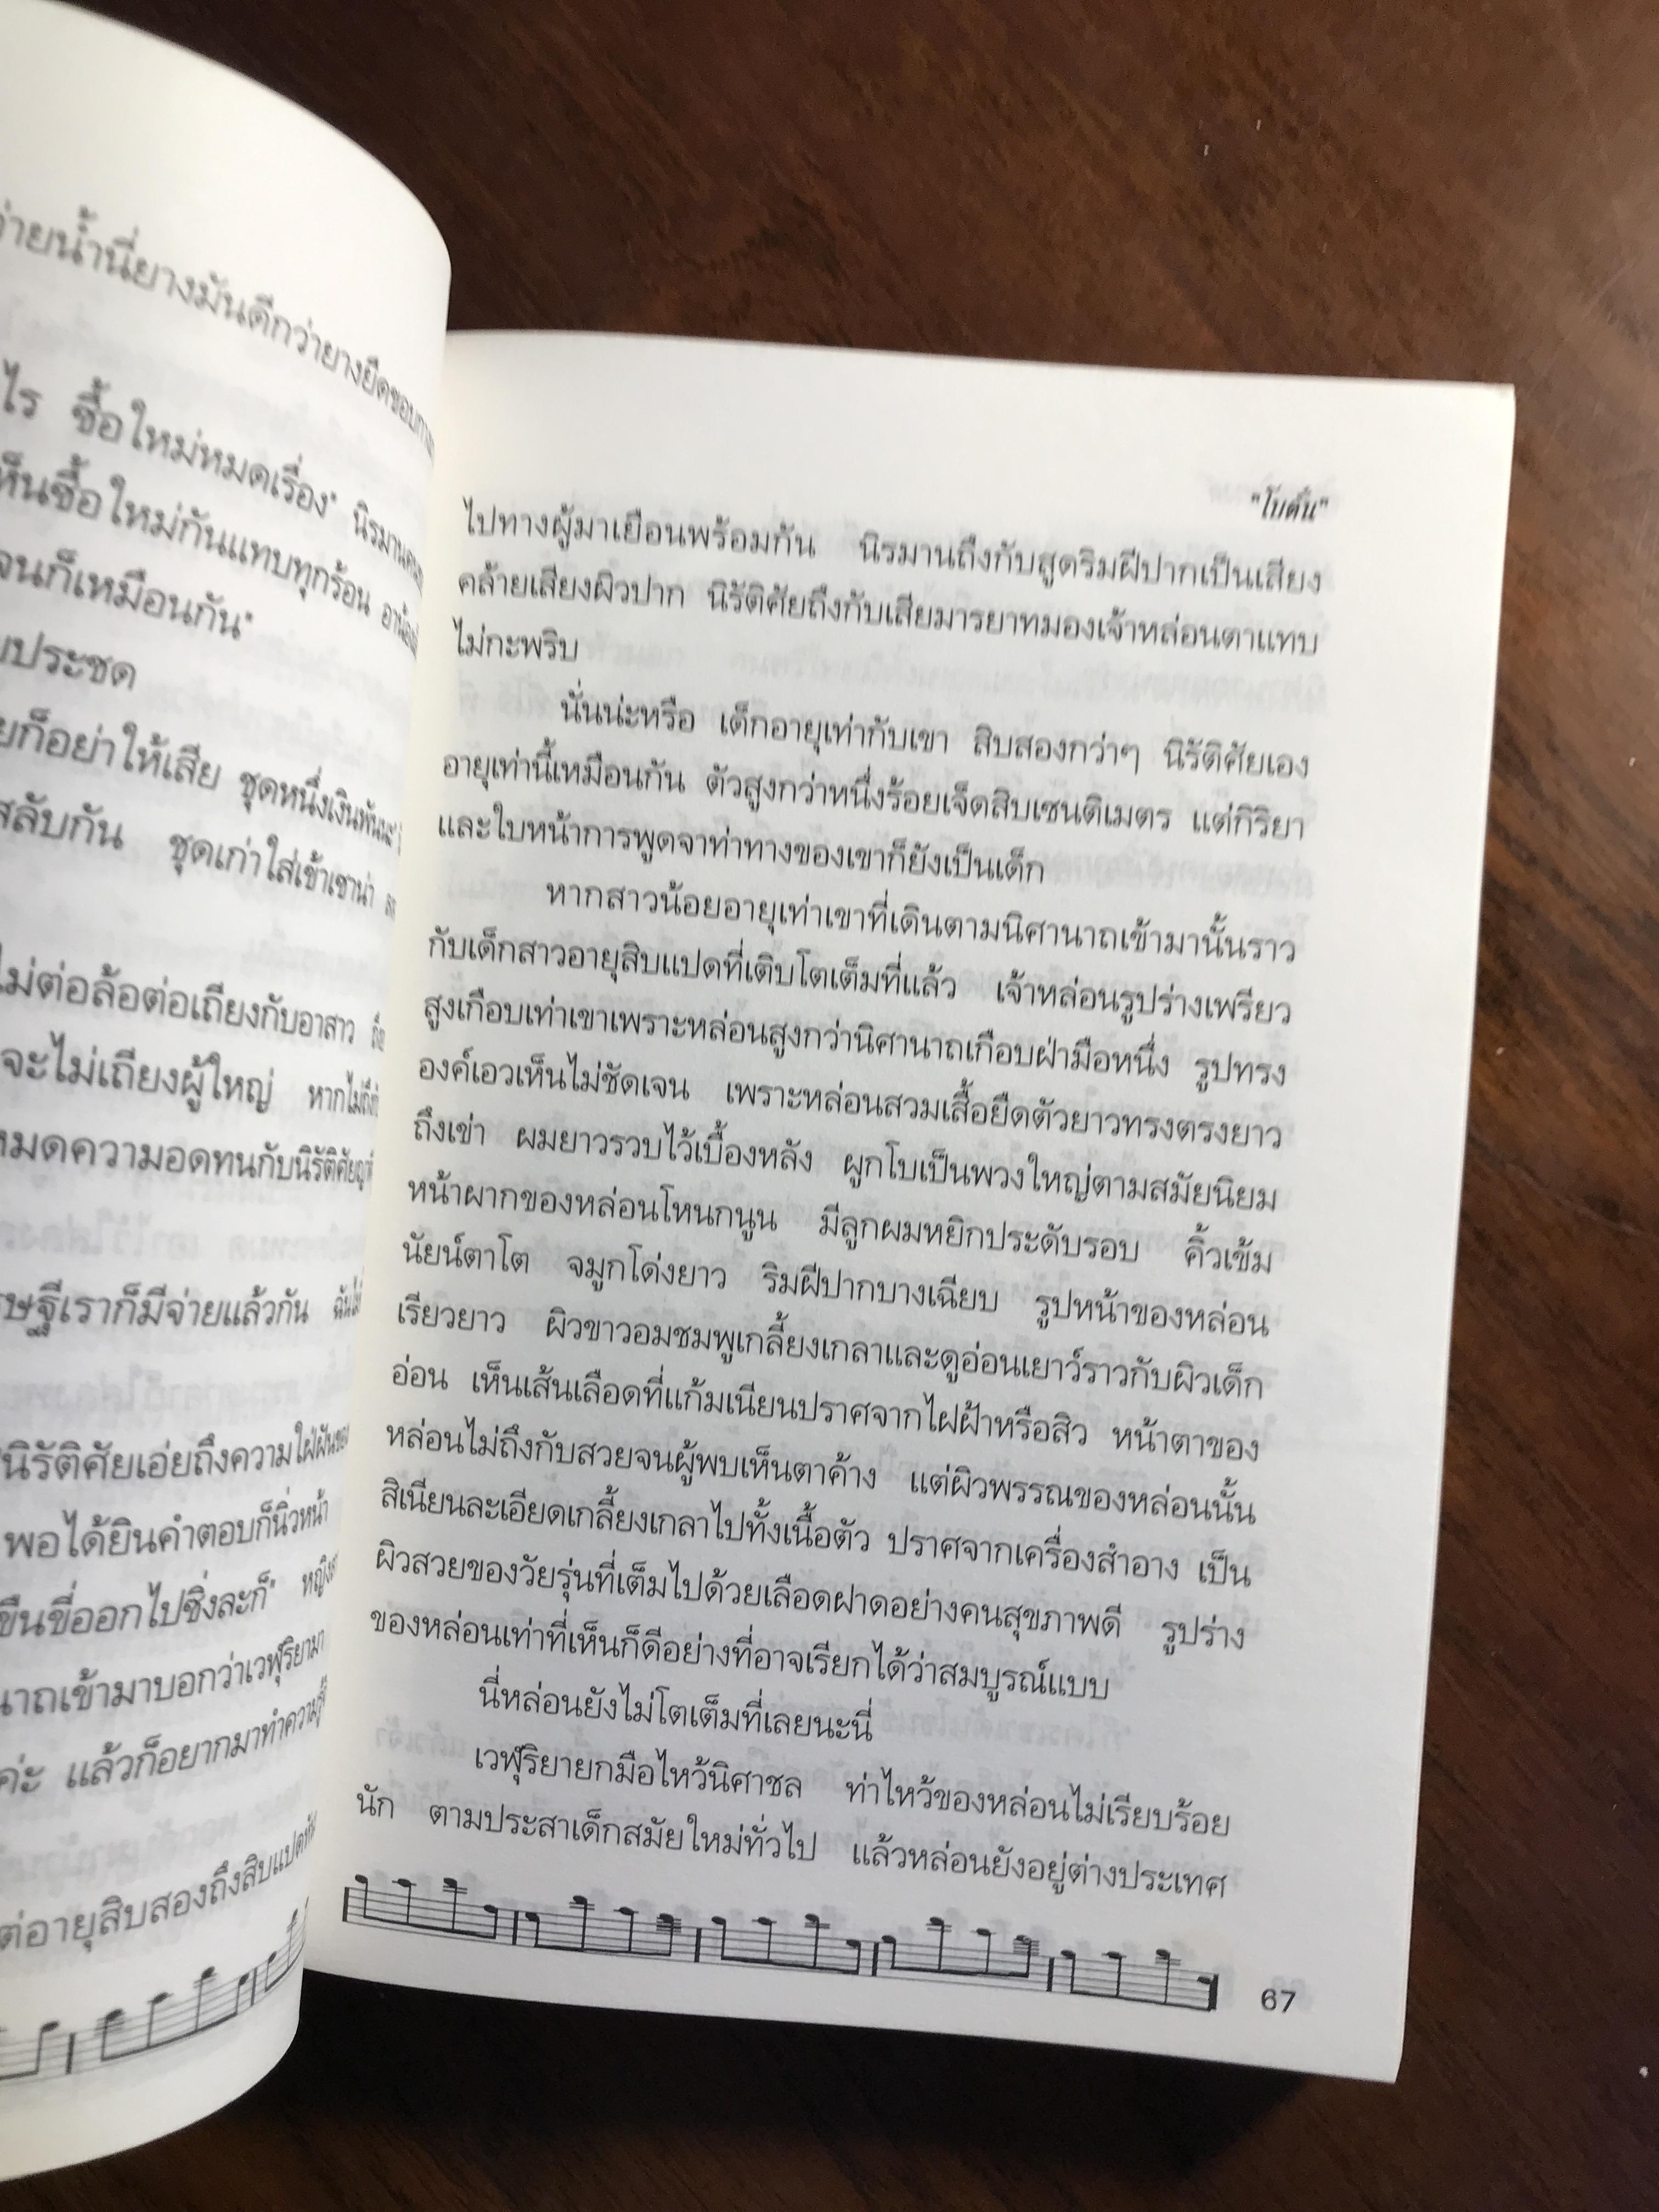 ่ายน้ำนี่ยางมันดีกว่ายางยืดขอบกาง
ไร ซื้อใหม่หมดเรื่อง" นิรมาน
ห็นซื้อใหม่กันแทบทุกร้อน
จนก็เหมือนกัน"
ประชด
ยก็อย่าให้เสีย ชุดหนึ่งเงินพัน
สลับกัน ชุดเก่าใส่เข้าเซาน่า
ไม่ต่อล้อต่อเถียงกับอาสาว
จะไม่เถียงผู้ใหญ่ หากไม่ถึง
หมดความอดทนกับนิรัติศัย
ษฐีเราก็มีจ่ายแล้วกัน
นิรัติศัยเอ่ยถึงความใฝ่ฝันของ
พอได้ยินคำตอบก็นิ่วหน้า
ขืนขี่ออกไปซิ่งละก็" หญิง
นาถเข้ามาบอกว่าเวฬุริยามา
ค่ะ แล้วก็อยากมาทำความรู้
ต่อายุสิบสองถึงสิบแปด
"โบตั๋น"
ไปทางผู้มาเยือนพร้อมกัน นิรมานถึงกับสูดริมฝีปากเป็นเสียง
คล้ายเสียงผิวปาก นิรัติศัยถึงกับเสียมารยาทมองเจ้าหล่อนตาแทบ
ไม่กะพริบ
นั่นน่ะหรือ เด็กอายุเท่ากับเขา สิบสองกว่าๆ นิรัติศัยเอง
อายุเท่านี้เหมือนกัน ตัวสูงกว่าหนึ่งร้อยเจ็ดสิบเซนติเมตร แต่กิริยา
และใบหน้าการพูดจาท่าทางของเขาก็ยังเป็นเด็ก
หากสาวน้อยอายุเท่าเขาที่เดินตามนิศานาถเข้ามานั้นราว
กับเด็กสาวอายุสิบแปดที่เติบโตเต็มที่แล้ว เจ้าหล่อนรูปร่างเพรียว
สูงเกือบเท่าเขาเพราะหล่อนสูงกว่านิศานาถเกือบฝ่ามือหนึ่ง รูปทรง
องค์เอวเห็นไม่ชัดเจน เพราะหล่อนสวมเสื้อยืดตัวยาวทรงตรงยาว
ถึงเข่า ผมยาวรวบไว้เบื้องหลัง ผูกโบเป็นพวงใหญ่ตามสมัยนิยม
หน้าผากของหล่อนโหนกนูน มีลูกผมหยิกประดับรอบ คิ้วเข้ม
นัยน์ตาโต จมูกโด่งยาว ริมฝีปากบางเฉียบ รูปหน้าของหล่อน
เรียวยาว ผิวขาวอมชมพูเกลี้ยงเกลาและดูอ่อนเยาว์ราวกับผิวเด็ก
อ่อน เห็นเส้นเลือดที่แก้มเนียนปราศจากไฝฝ้าหรือสิว หน้าตาของ
หล่อนไม่ถึงกับสวยจนผู้พบเห็นตาค้าง แต่ผิวพรรณของหล่อนนั้น
สิเนียนละเอียดเกลี้ยงเกลาไปทั้งเนื้อตัว ปราศจากเครื่องสำอาง เป็น
ผิวสวยของวัยรุ่นที่เต็มไปด้วยเลือดฝาดอย่างคนสุขภาพดี รูปร่าง
ของหล่อนเท่าที่เห็นก็ดีอย่างที่อาจเรียกได้ว่าสมบูรณ์แบบ
นี่หล่อนยังไม่โตเต็มที่เลยนะนี่
เวฬุริยายกมือไหว้นิศาชล ท่าไหว้ของหล่อนไม่เรียบร้อย
นัก ตามประสาเด็กสมัยใหม่ทั่วไป แล้วหล่อนยังอยู่ต่างประเทศ
67